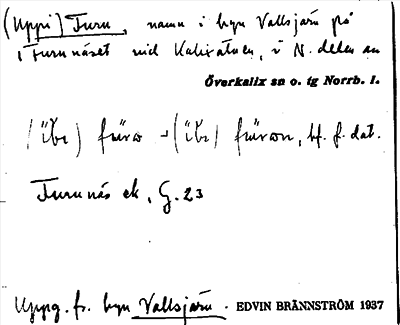 (Uppi) Furu, namn i byn Vallsjärn på
Furunäset vid Kalixälven, i N. delen av
Överkalix sn o. tg Norrb. l.
(ib̥ı) fürω -(ib̥ı) fürωn, bf. f. dat.
Furunäs ek, G. 23
Uppg. fr. byn Vallsjärn. EDVIN BRÄNNSTRÖM 1937